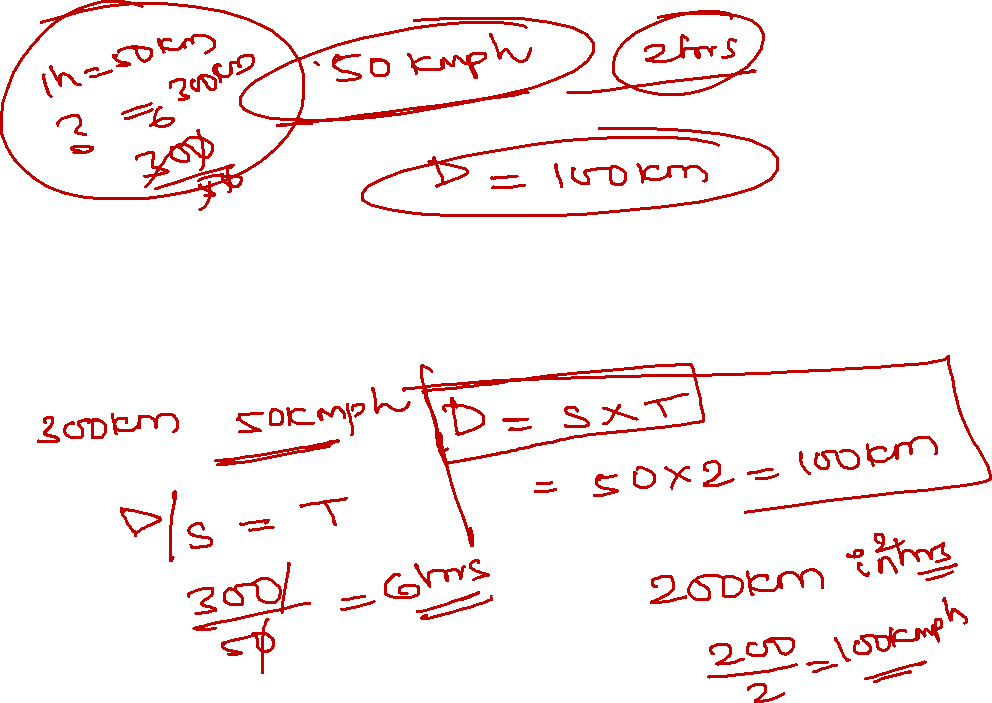 1h = 50km
? = 300km
6
300/50
50 kmph 2hrs
D = 100km
300km 50kmph
D/S = T
300/50 = 6hrs
D = S X T
= 50 X 2 = 100km
200km in 2hrs
200/2 = 100kmph